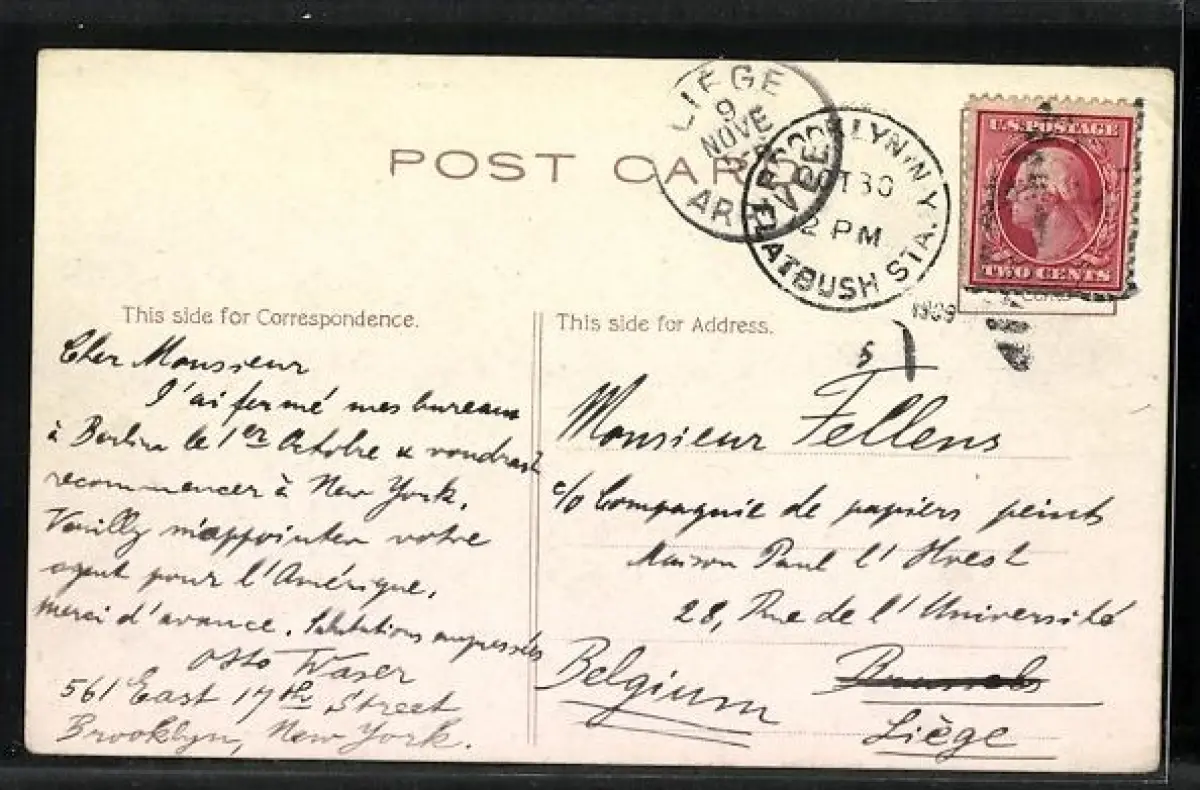 POST CARD
LIÉGE
9
NOVE
AR
BROOKLYN, N.Y.
OCT 30
2 PM
FLATBUSH STA.
1909
U.S. POSTAGE
TWO CENTS
This side for Correspondence.
Cher Monsieur
J'ai fermé mes bureaux
à Berlin le 1er Octobre & voudrait
recommencer à New York.
Veuilly m'appointer votre
agent pour l'Amérique.
Merci d'avance. Salutations empressées
Otto Waser
561 East 17th Street
Brooklyn, New York.
This side for Address.
5
Monsieur Fellens
c/o Compagnie de papiers peints
Maison Paul l'Hoest
28, Rue de l'Université
Belgium
Brussels
Liège